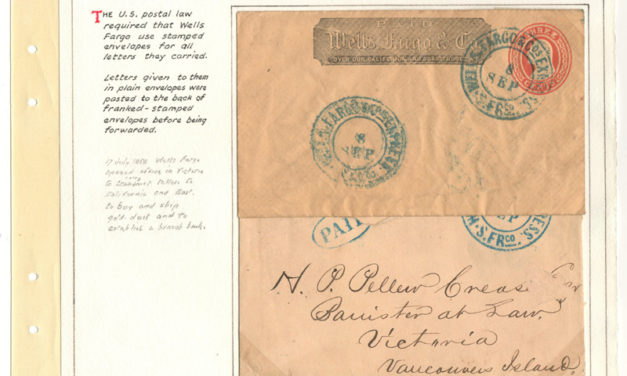 THE U.S. postal law
required that Wells
Fargo use stamped
envelopes for all
letters they carried.
Letters given to them
in plain envelopes were
pasted to the back of
franked-stamped
envelopes before being
forwarded.
17 July 1858 Wells Fargo
opened office in Victoria
to letters to
California and East.
to buy and ship
gold dust and to
establish a branch bank.
PAID
Wells, Fargo & Co.
OVER OUR CALIFORNIA
THREE
WELLS, FARGO & COS EXPRESS
8
SEP
S. FRCO.
WELLS, FARGO & COS EXPRESS
8
SEP
S. FRCO.
PAID
SEP
S. FRCO.
H. P. Pellew Crease
Barrister at Law.
Victoria
Vancouvers Island.